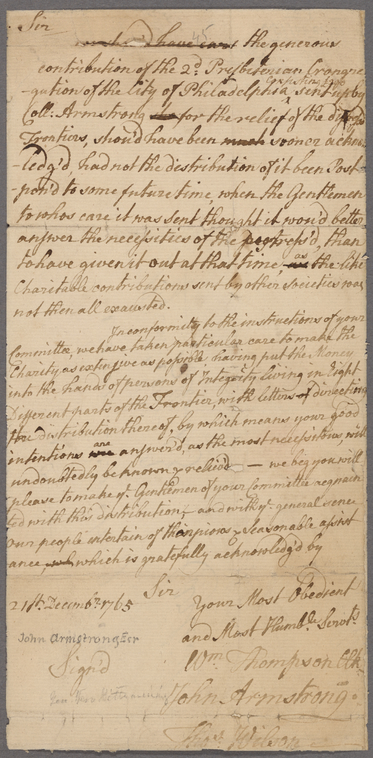 Sir
the generous
contribution of the 2d. Presbeterian Congre
-gation of the City of Philadelphia sent up by
Coll: Armstrong for the relief of the
Frontiers, shou'd have been much sooner acknow
-ledg'd had not the distribution of it been Post
-pon'd to some future time when the Gentlemen
to whos care it was sent thought it wou'd better
answer the necessities of the than
to have given it out at that time, as the
Charitable contributions sent by other societies was
not then all exausted.
In conformity to the instructions of your
Committee, we have taken particular care to make the
Charity as extensive as possible having put the Money
into the hands of persons of Integrity living in Eight
Different parts of the Frontier, with letters directing
the distribution thereof, by which means your good
intentions are answer'd, as the most necessitous will
undoubtedly be known & reliev'd — we beg you will
please to make ye. Gentlemen of your Committee acquain
-ted with this distribution, and with ye. general sence
our people entertain of that pious & Seasonable assist
ance, which is gratefully acknowledg'd by
Sir
21st. Decembr. 1765
Your Most Obedient
and Most Humble. Servts.
John Armstrong Esr
Sign'd
Wm. Thompson Clk
John Armstrong
Thos. Wilson